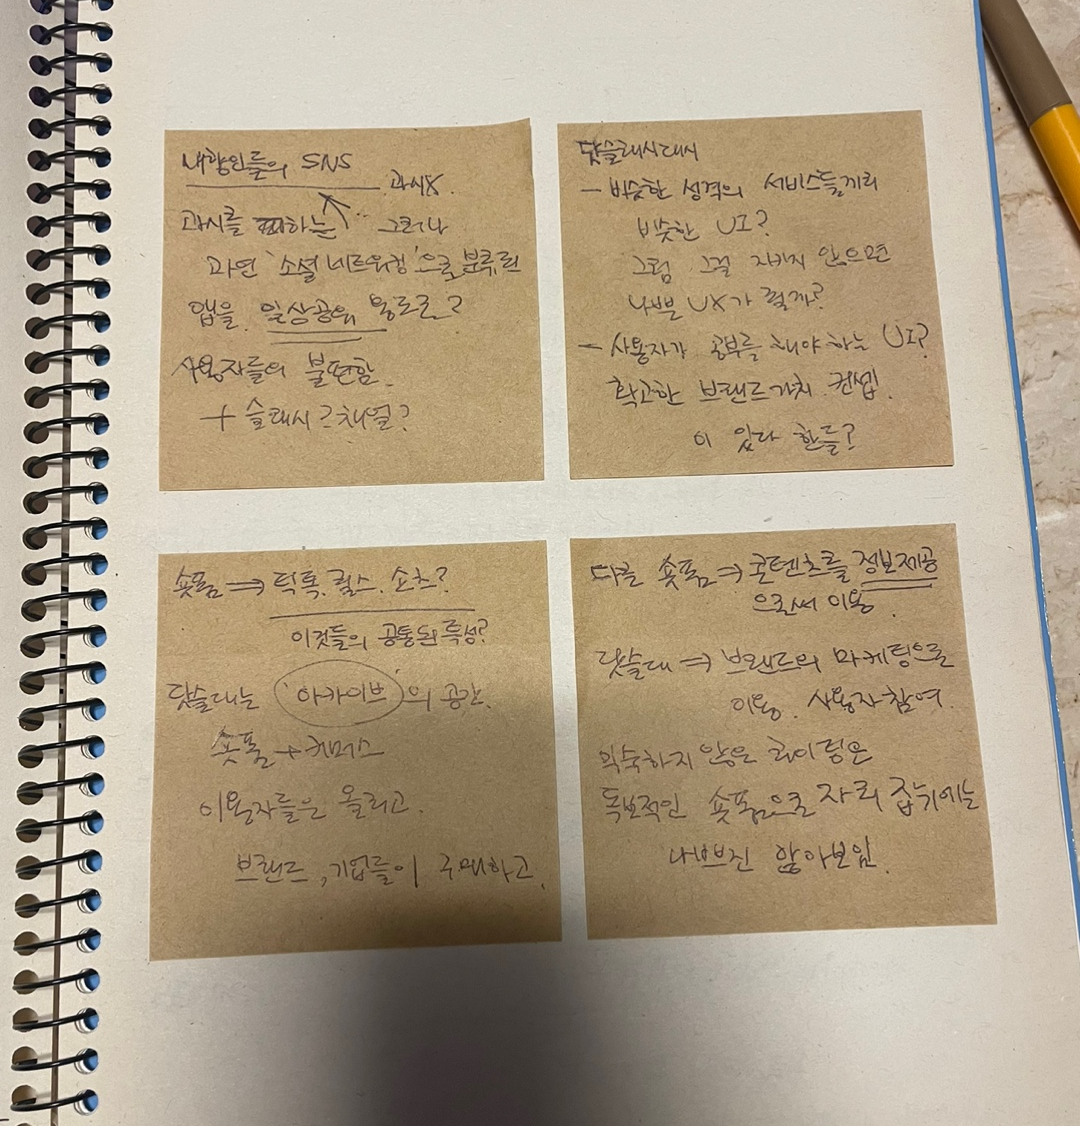 내향인들의 SNS
과시X.
과시를 피하는 그러나
과연 '소셜 네트워킹'으로 분류된
앱을 일상공유 용도로?
사용자들의 불편함.
+ 슬래시 그 채열?
닷슬래시대시
- 비슷한 성격의 서비스들끼리
비슷한 UI?
그럼 그걸 지키지 않으면
나쁜 UX가 될까?
- 사용자가 공부를 해야 하는 UI?
확고한 브랜드가치. 컨셉.
이 있다 한들?
숏폼 → 틱톡. 릴스. 쇼츠?
이것들의 공통된 특성?
닷슬대는 '아카이브'의 공간.
숏폼 + 커머스
이용자들은 올리고.
브랜드, 기업들이 구매하고.
다른 숏폼 → 콘텐츠를 정보제공
으로써 이용.
닷슬대 → 브랜드의 마케팅으로
이용. 사용자참여.
익숙하지 않은 네이밍은
독보적인 숏폼으로 자리 잡기에는
나쁘진 않아보임.